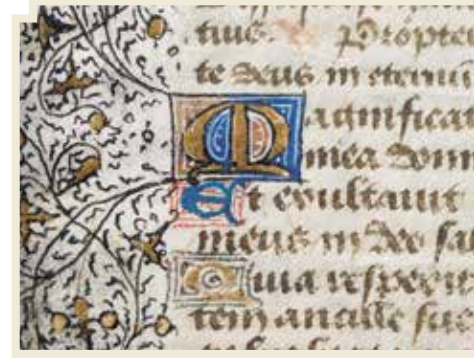 tuus. Propter
te deus in eternu
Magnificat
mea domi
Et exultauit
meus in deo sal
Quia respexit
tem ancille sue